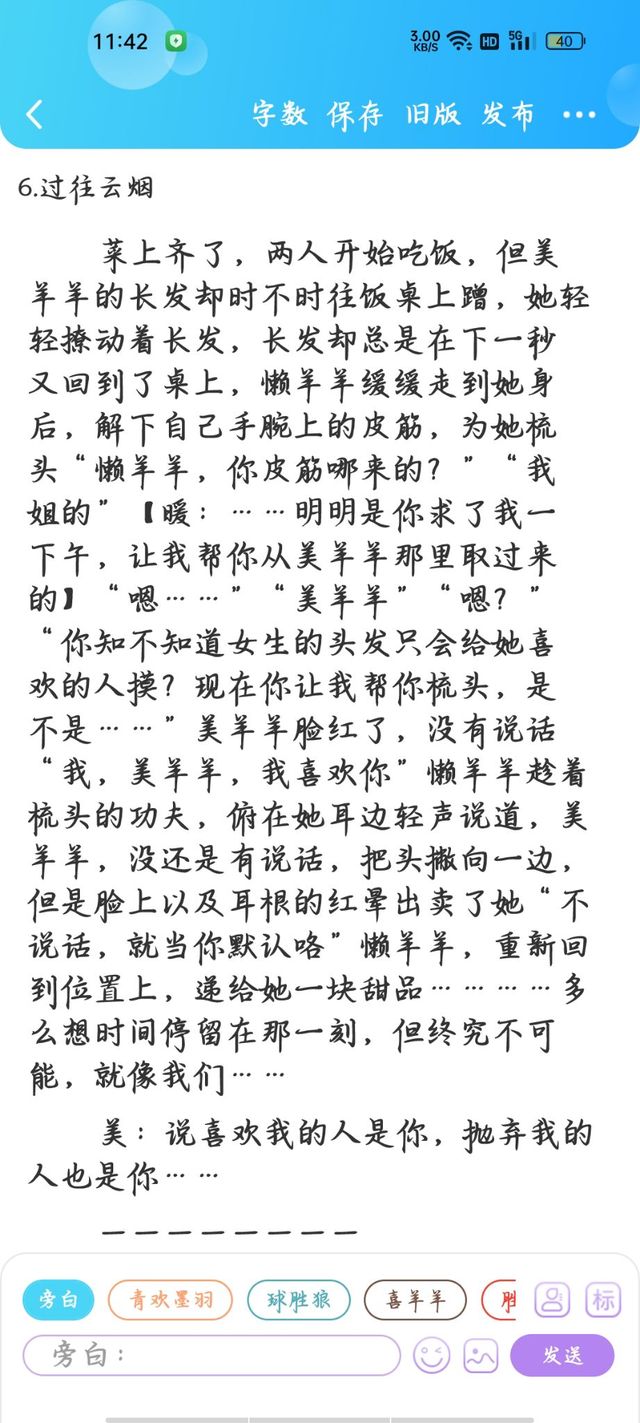 11:42
3.00 KB/S HD 5G 40
字数 保存 旧版 发布 ···
6.过往云烟
菜上齐了，两人开始吃饭，但美
羊羊的长发却时不时往饭桌上蹭，她轻
轻撩动着长发，长发却总是在下一秒
又回到了桌上，懒羊羊缓缓走到她身
后，解下自己手腕上的皮筋，为她梳
头“懒羊羊，你皮筋哪来的？”“我
姐的”【暖：……明明是你求了我一
下午，让我帮你从美羊羊那里取过来
的】“嗯……”“美羊羊”“嗯？”
“你知不知道女生的头发只会给她喜
欢的人摸？现在你让我帮你梳头，是
不是……”美羊羊脸红了，没有说话
“我，美羊羊，我喜欢你”懒羊羊趁着
梳头的功夫，俯在她耳边轻声说道，美
羊羊，没还是有说话，把头撇向一边，
但是脸上以及耳根的红晕出卖了她“不
说话，就当你默认咯”懒羊羊，重新回
到位置上，递给她一块甜品…………多
么想时间停留在那一刻，但终究不可
能，就像我们……
美：说喜欢我的人是你，抛弃我的
人也是你……
————————
旁白 青欢墨羽 球胜狼 喜羊羊 胜 标
旁白： 发送